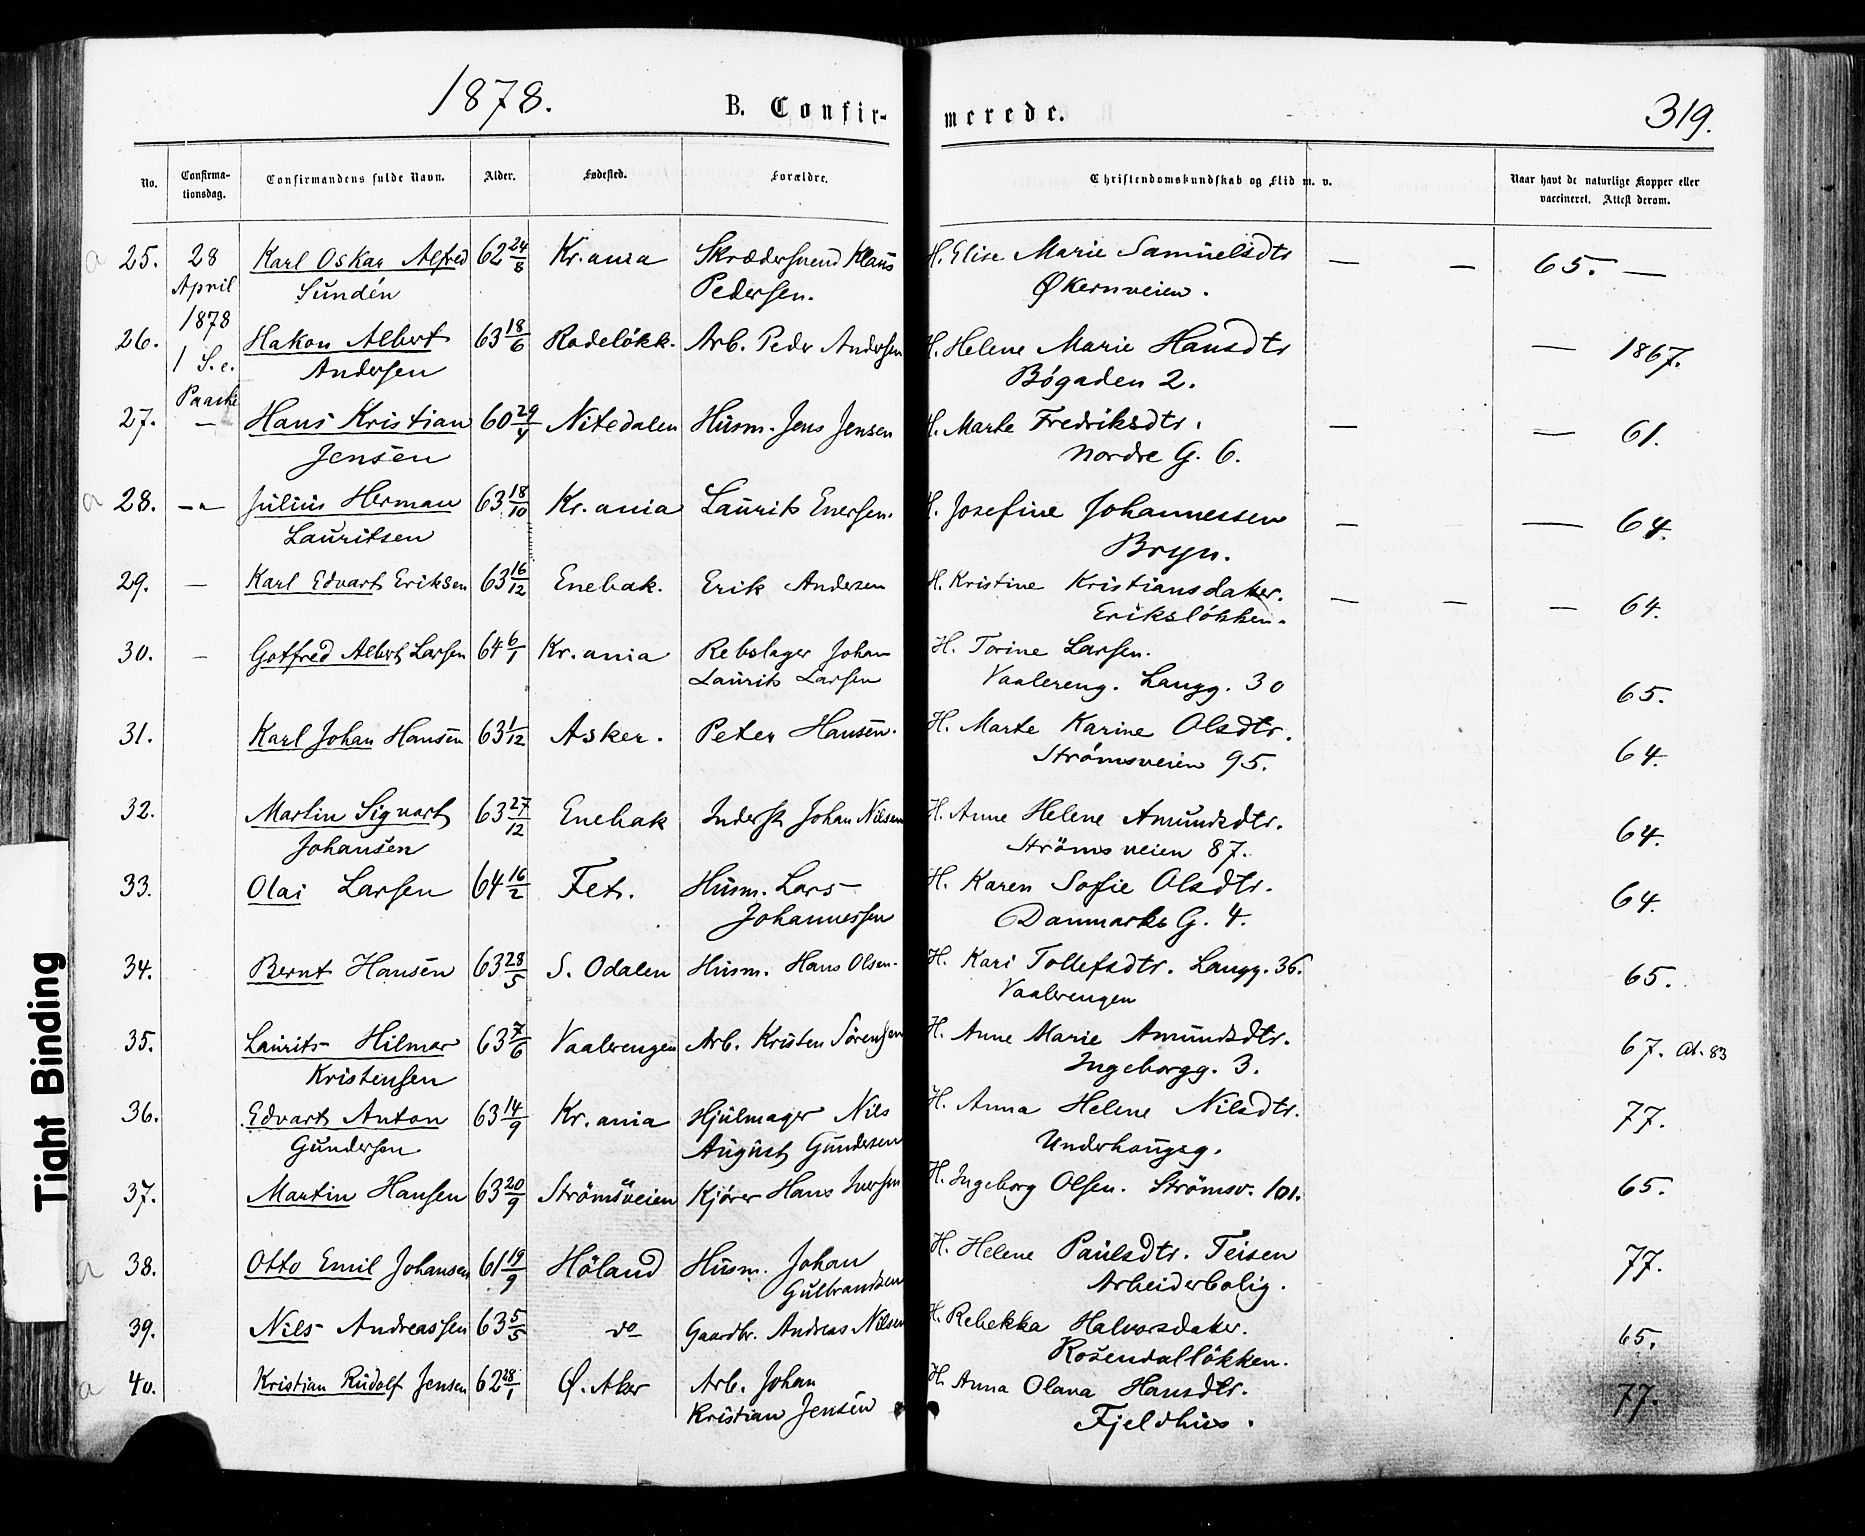 1878. B. Confir- merede. 319.
No. Confirma-tionsdag. Confirmandens fulde Navn. Alder. Fødested. Forældre. Christendomskundskab og Flid m. v. Naar havt de naturlige Kopper eller vaccineret. Attest derom.
a 25. 28 Karl Oskar Alfred 62 24/8 Kr.ania Skrædersvend Klaus H. Elise Marie Samuelsdtr — — 65. —
April Sundén Pedersen. Økernveien.
1878
26. 1 S. e. Hakon Albert 63 18/6 Rodeløkk. Arb. Peder Andersen H. Helene Marie Hansdtr — 1867.
Paaske Andersen Bøgaden 2.
27. — Hans Kristian 60 29/4 Nitedalen Husm. Jens Jensen H. Marte Fredriksdtr. — — 61.
Jensen Nordre G. 6.
a 28. —"— Julius Herman 63 18/10 Kr.ania Laurits Enersen. H. Josefine Johannessen — — 64.
Lauritsen Bryn.
29. — Karl Edvart Eriksen 63 16/12 Enebak. Erik Andersen H. Kristine Kristiansdatter. — — — 64.
Eriksløkken.
30. — Gotfred Albert Larsen 64 6/1 Kr.ania Rebslager Johan H. Torine Larsen.
Laurits Larsen Vaalereng. Langg. 30 65.
31. Karl Johan Hansen 63 1/12 Asker. Peter Hansen. H. Marte Karine Olsdtr.
Strømsveien 95. 64.
32. Martin Sigvart 63 27/12 Enebak Inderst Johan Nilsen H. Anne Helene Amundsdtr. 64.
Johansen Strømsveien 87.
33. Olai Larsen 64 16/2 Fet. Husm. Lars H. Karen Sofie Olsdtr. 64.
Johannessen Danmarks G. 4.
34. Bernt Hansen 63 28/5 S. Odalen Husm. Hans Olsen. H. Kari Tollefsdtr. Langg. 36. 65.
Vaalerengen
35. Laurits Hilmar 63 7/6 Vaalerengen Arb. Kristen Sørensen H. Anne Marie Amundsdtr. 67. At. 83
Kristensen Ingeborgg. 3.
36. Edvart Anton 63 14/9 Kr.ania Hjulmager Nils H. Anna Helene Nilsdtr. 77.
Gundersen. August Gundersen Underhaugsg.
37. Martin Hansen 63 20/9 Strømsveien Kjører Hans Iversen H. Ingeborg Olsen. Strømsv. 101. 65.
a 38. Otto Emil Johansen 61 19/9 Høland Husm. Johan H. Helene Paulsdtr. Teisen 77.
Gulbrandsen Arbeiderbolig.
39. Nils Andreassen 63 5/5 do Gaardbr. Andreas Nilsen H. Rebekka Halvorsdatter. 65.
Rosendalløkken.
a 40. Kristian Rudolf Jensen 62 28/1 Ø. Aker Arb. Johan H. Anna Olava Hansdtr. 77.
Kristian Jensen Fjeldhus.
Tight Binding